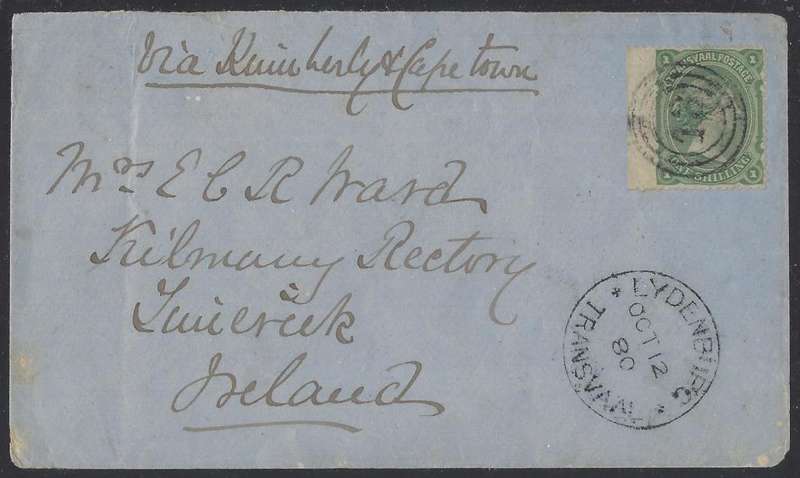 Via Kimberly & Cape town
1 TRANSVAAL POSTAGE 1
1 ONE SHILLING 1
Mrs E C R Ward
Kilmany Rectory
Limerick
Ireland
LYDENBURG
OCT 12
80
TRANSVAAL